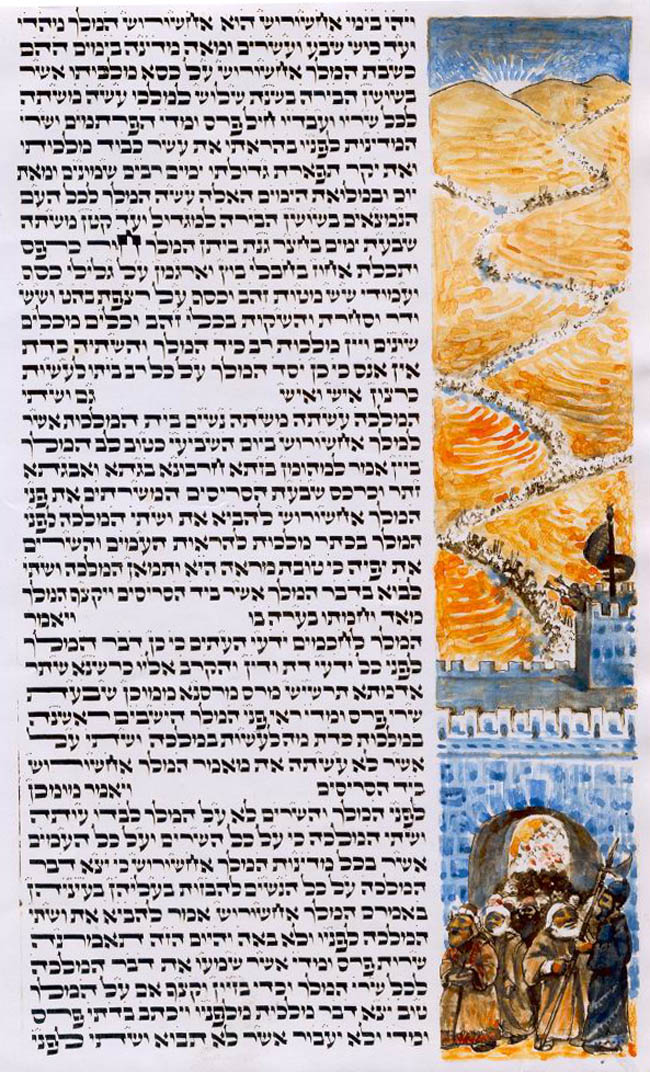 ויהי בימי אחשורוש הוא אחשורוש המלך מהדו
ועד כוש שבע ועשרים ומאה מדינה בימים ההם
כשבת המלך אחשורוש על כסא מלכותו אשר
בשושן הבירה בשנת שלוש למלכו עשה משתה
לכל שריו ועבדיו חיל פרס ומדי הפרתמים ושרי
המדינות לפניו בהראתו את עשר כבוד מלכותו
ואת יקר תפארת גדולתו ימים רבים שמונים ומאת
יום ובמלואת הימים האלה עשה המלך לכל העם
הנמצאים בשושן הבירה למגדול ועד קטן משתה
שבעת ימים בחצר גנת ביתן המלך חור כרפס
ותכלת אחוז בחבלי בוץ וארגמן על גלילי כסף
ועמודי שש מטות זהב וכסף על רצפת בהט ושש
ודר וסחרת והשקות בכלי זהב וכלים מכלים
שונים ויין מלכות רב כיד המלך והשתיה כדת
אין אנס כי כן יסד המלך על כל רב ביתו לעשות
כרצון איש ואיש גם ושתי
המלכה עשתה משתה נשים בית המלכות אשר
למלך אחשורוש ביום השביעי כטוב לב המלך
ביין אמר למהומן בזתא חרבונא בגתא ואבגתא
זתר וכרכס שבעת הסריסים המשרתים את פני
המלך אחשורוש להביא את ושתי המלכה לפני
המלך בכתר מלכות להראות העמים והשרים
את יפיה כי טובת מראה היא ותמאן המלכה ושתי
לבוא בדבר המלך אשר ביד הסריסים ויקצף המלך
מאד וחמתו בערה בו ויאמר
המלך לחכמים ידעי העתים כי כן דבר המלך
לפני כל ידעי דת ודין והקרב אליו כרשנא שתר
אדמתא תרשיש מרס מרסנא ממוכן שבעת
שרי פרס ומדי ראי פני המלך הישבים ראשנה
במלכות כדת מה לעשות במלכה ושתי על
אשר לא עשתה את מאמר המלך אחשורוש
ביד הסריסים ויאמר מומכן
לפני המלך והשרים לא על המלך לבדו עותה
ושתי המלכה כי על כל השרים ועל כל העמים
אשר בכל מדינות המלך אחשורוש כי יצא דבר
המלכה על כל הנשים להבזות בעליהן בעיניהן
באמרם המלך אחשורוש אמר להביא את ושתי
המלכה לפניו ולא באה והיום הזה תאמרנה
שרות פרס ומדי אשר שמעו את דבר המלכה
לכל שרי המלך וכדי בזיון וקצף אם על המלך
טוב יצא דבר מלכות מלפניו ויכתב בדתי פרס
ומדי ולא יעבור אשר לא תבוא ושתי לפני